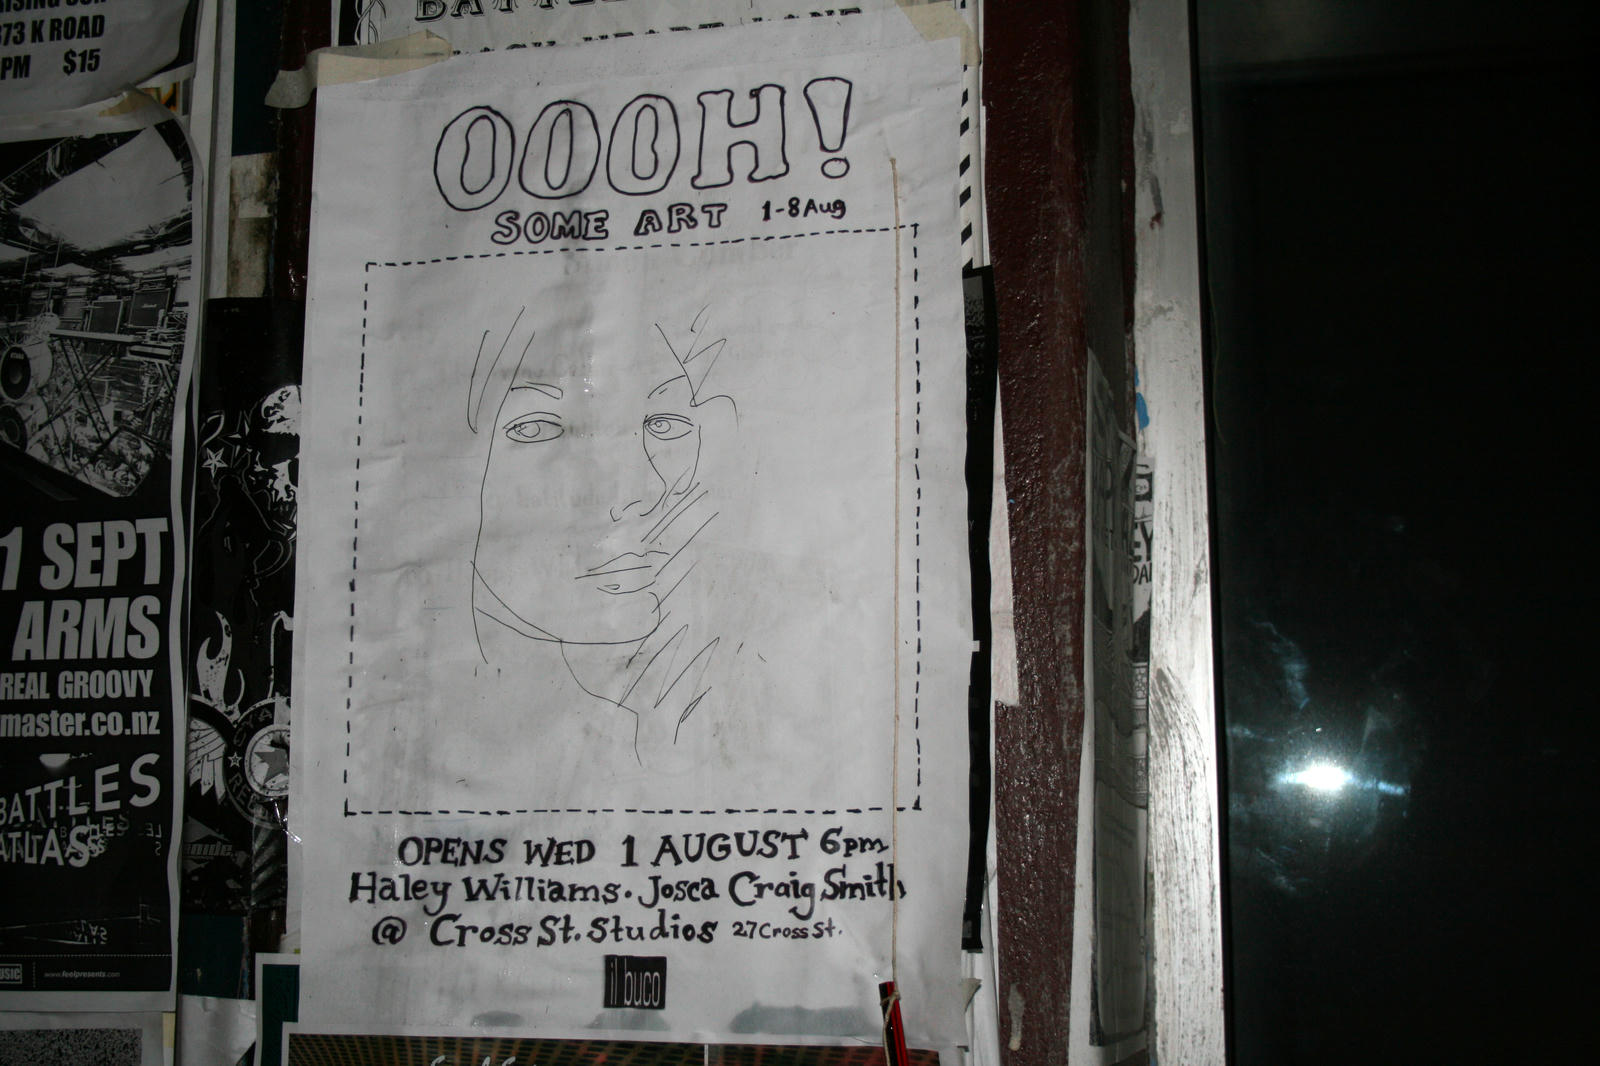 RISING SUN
373 K ROAD
PM $15
BATTLE
BLACK HEART LANE
OOOH!
SOME ART 1-8 Aug
OPENS WED 1 AUGUST 6pm
Haley Williams. Josca Craig Smith
@ Cross St. Studios 27 Cross St.
il buco
1 SEPT
ARMS
REAL GROOVY
master.co.nz
BATTLES
ATLAS
www.feelpresents.com